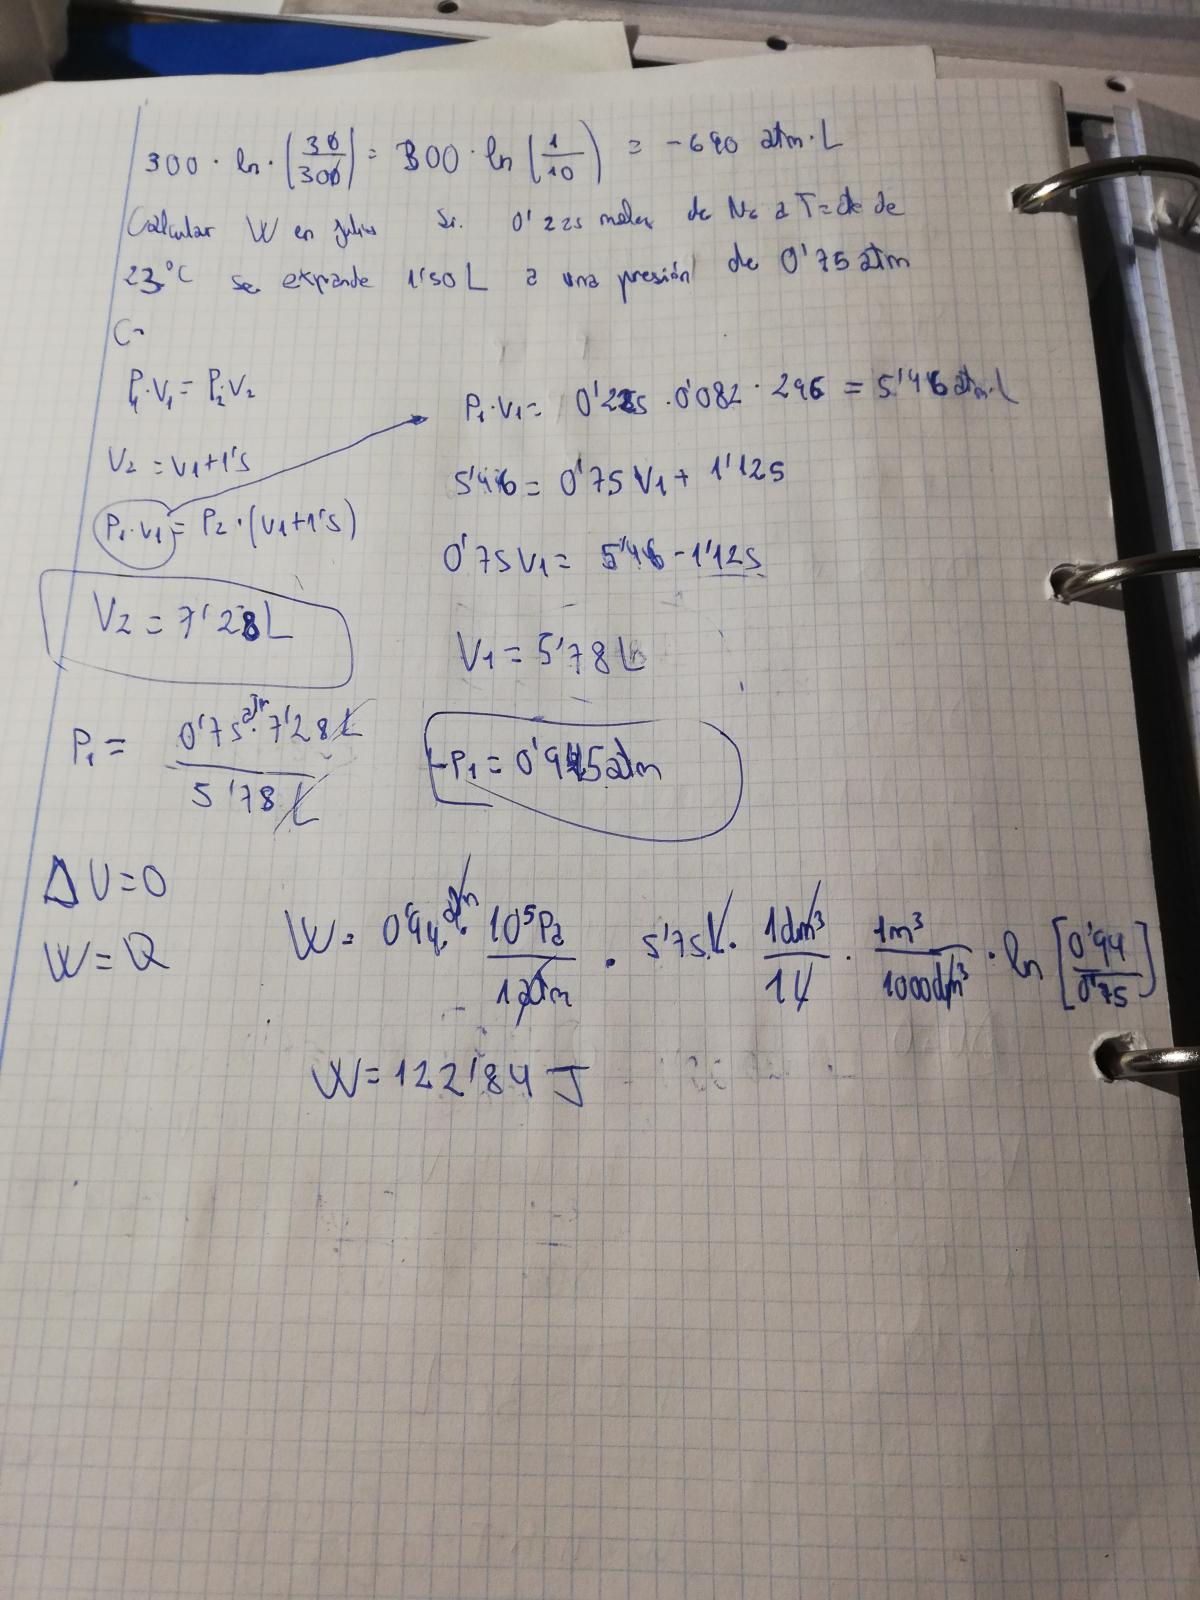 300 · ln · (30/300) = 300 · ln (1/10) = -690 atm·L
Calcular W en julios si 0'225 moles de N₂ a T=cte de
23°C se expande 1'50 L a una presión de 0'75 atm
P₁·V₁ = P₂·V₂
V₂ = V₁+1'5
P₁·V₁ = P₂·(V₁+1'5)
V₂ = 7'28 L
P₁·V₁ = 0'225 · 0'082 · 296 = 5'46 atm·L
5'46 = 0'75 V₁ + 1'125
0'75 V₁ = 5'46 - 1'125
V₁ = 5'78 L
P₁ = 0'75 atm · 7'28 L / 5'78 L
P₁ = 0'945 atm
ΔU = 0
W = Q
W = 0'94 atm · 10⁵Pa/1 atm · 5'75 L · 1dm³/1L · 1m³/1000dm³ · ln [0'94/0'75]
W = 122'84 J